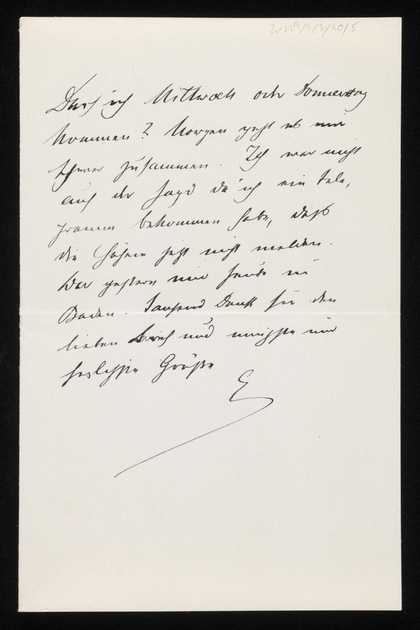 Darf ich Mittwoch oder Donnerstag
kommen? Morgen geht es mir
schwer zusammen. Ich war nicht
auf der Jagd da ich ein Tele,
gramm bekommen habe, daß
die Hähne jetzt nicht melden.
War gestern mir heute in
Baden. Tausend Dank für den
lieben Brief und innigste und
herzlichste Grüße
E